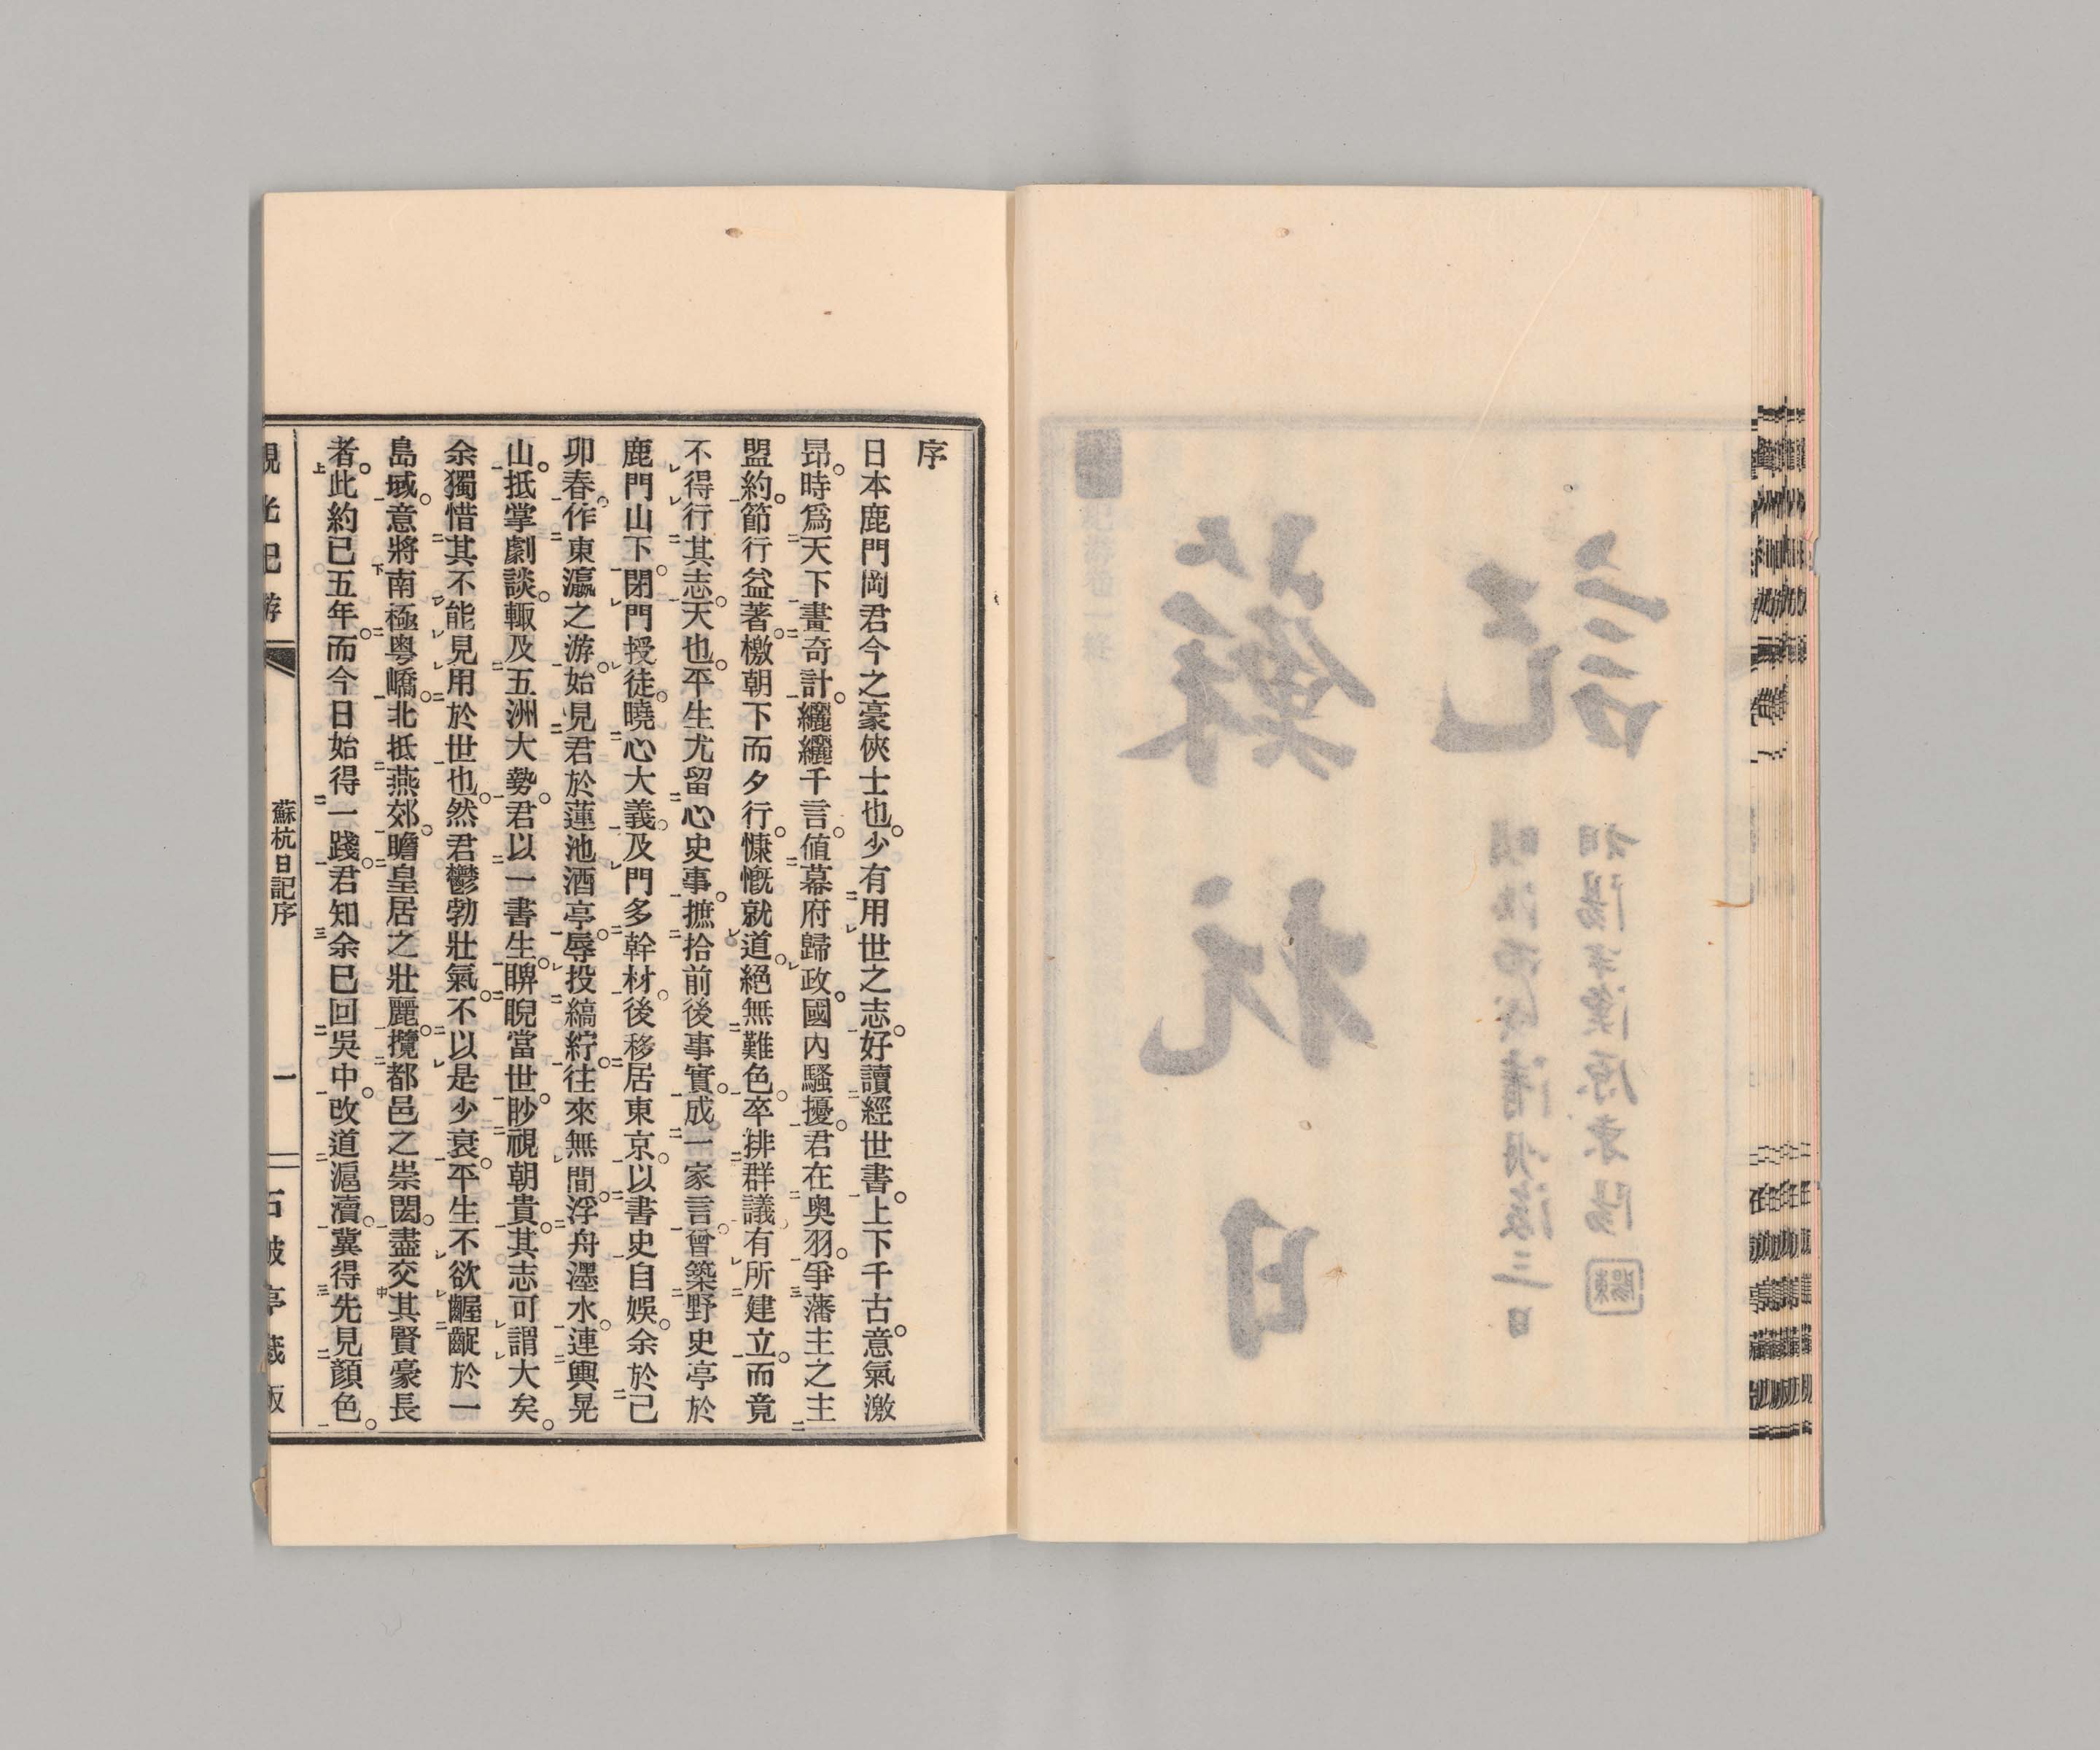 序
日本鹿門岡君今之豪俠士也。少有用世之志。好讀經世書。上下千古。意氣激
昂。時爲天下畫奇計。纚纚千言。値幕府歸政。國內騷擾。君在奥羽。爭藩主之主
盟約。節行益著。檄朝下而夕行。慷慨就道。絕無難色。卒排群議。有所建立。而竟
不得行其志。天也。平生尤留心史事。摭拾前後事實。成一家言。曾築野史亭於
鹿門山下。閉門授徒。曉心大義。及門多幹材。後移居東京。以書史自娛。余於己
卯春。作東瀛之游。始見君於蓮池酒亭。辱投縞紵。往來無間。浮舟濹水。連輿晃
山。抵掌劇談。輙及五洲大勢。君以一書生。睥睨當世。眇視朝貴。其志可謂大矣。
余獨惜其不能見用於世也。然君鬱勃壯氣。不以是少衰。平生不欲齷齪於一
島域。意將南極粤嶠。北抵燕郊。瞻皇居之壯麗。攬都邑之崇閎。盡交其賢豪長
者。此約已五年。而今日始得一踐。君知余已回吳中。改道滬瀆。冀得先見顏色。
蘇杭日記序
一